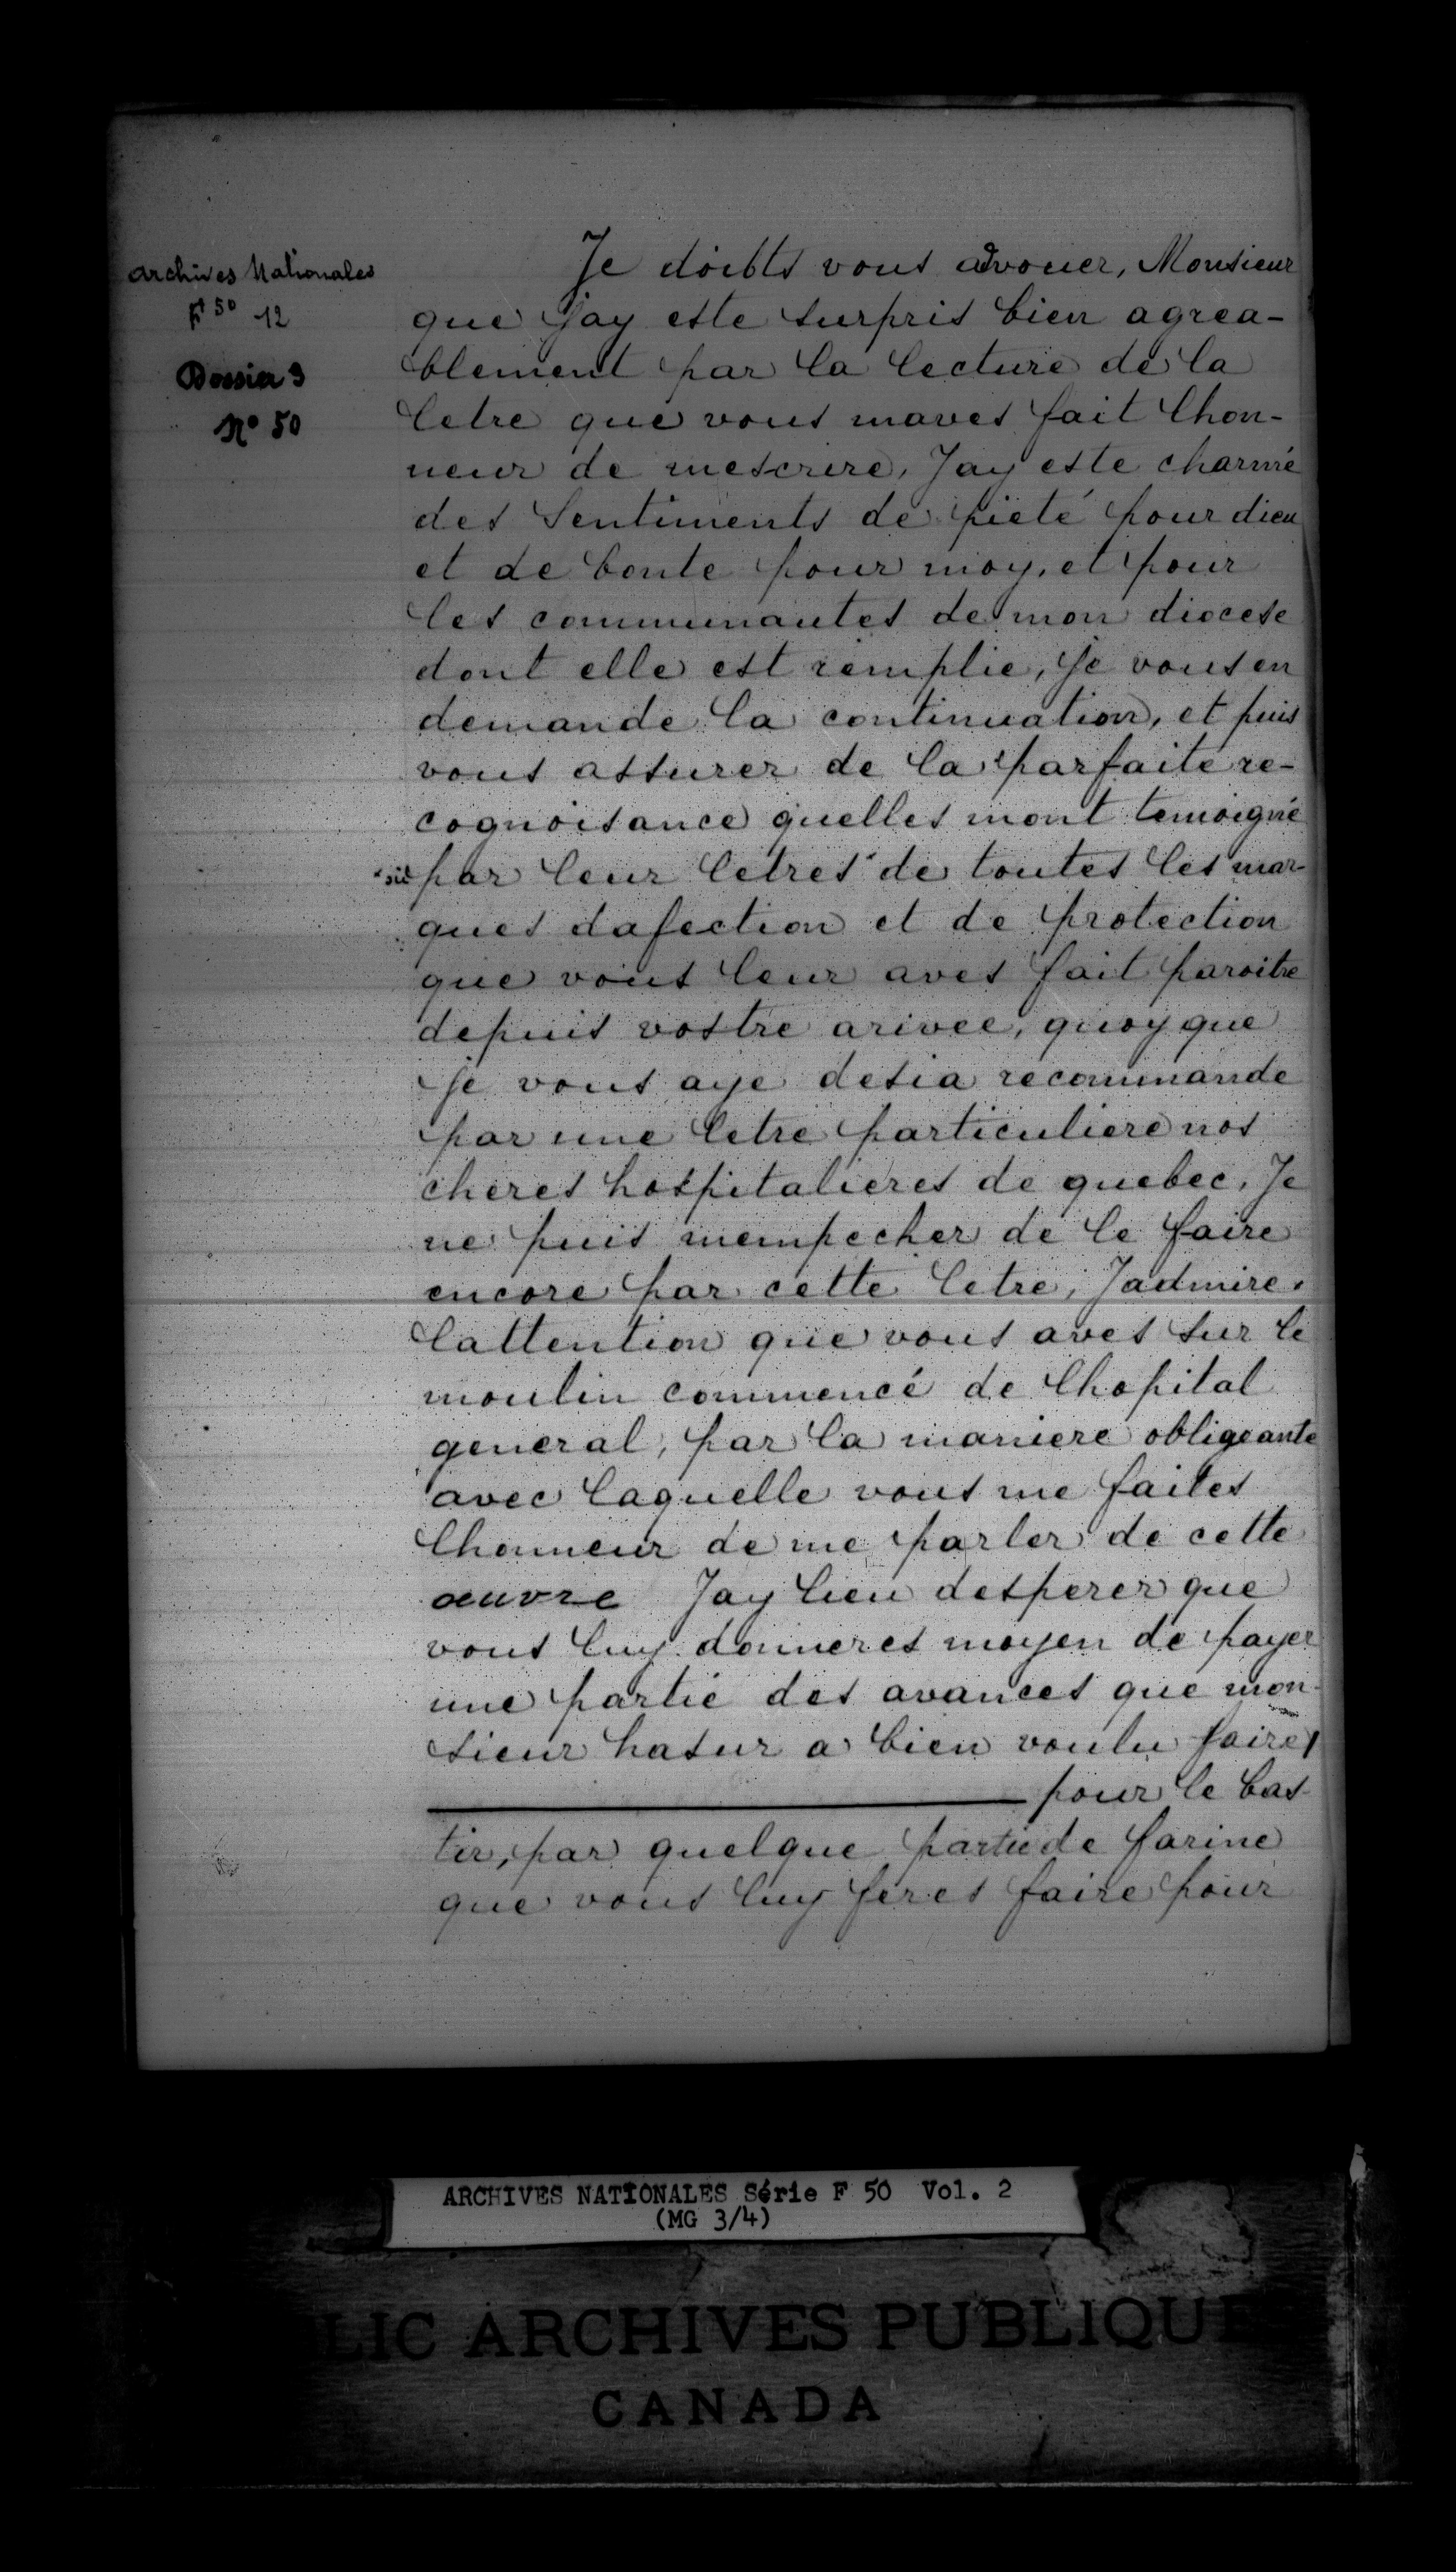 Archives Nationales
F 50 12
Dossier 3
N° 50
Je doibts vous advouer, Monsieur
que Jay este surpris bien agrea-
blement par la lecture de la
letre que vous maves fait lhon-
neur de mescrire, Jay este charmé
des Sentiments de pieté pour dieu
et de bonte pour moy, et pour
les communautes de mon diocese
dont elle est remplie, je vous en
demande la continuation, et puis
vous assurer de la parfaite re-
cognoisance quelles mont temoigné
*sic par leur letres* de toutes les mar-
ques dafection et de protection
que vous leur aves fait paroitre
depuis vostre arivee, quoy que
je vous aye desia recommande
par une letre particuliere nos
cheres hospitalieres de quebec, Je
ne puis mempecher de le faire
encore par cette letre, Jadmire
lattention que vous aves sur le
moulin commencé de lhopital
general, par la maniere obligeante
avec laquelle vous me faites
lhonneur de me parler de cette
œuvre Jay lieu desperer que
vous luy donneres moyen de payer
une partie des avances que mon-
sieur hasur a bien voulu faire
pour le bas-
tir, par quelque partie de farine
que vous luy feres faire pour
ARCHIVES NATIONALES Série F 50 Vol. 2
(MG 3/4)
LIC ARCHIVES PUBLIQUE
CANADA